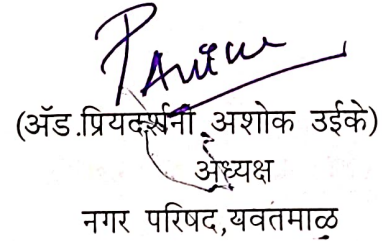 (ॲड.प्रियदर्शनी अशोक उईके)
अध्यक्ष
नगर परिषद,यवतमाळ